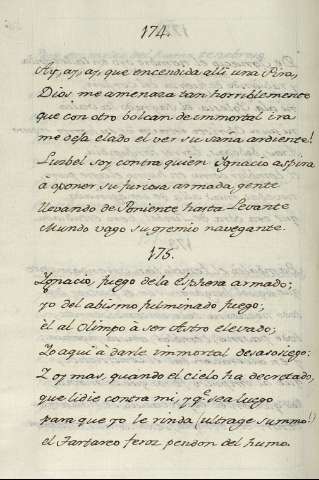 174.
Ay, ay, ay, que encendida alli una Pira,
Dios me amenaza tan horriblemente
que con otro bolcan de immortal ira
me deja elado el ver su saña ardiente!
Luzbel soy contra quien Ignacio aspira
à oponer su furiosa armada gente
llevando de Poniente hasta Levante
Mundo vago su gremio navegante.
175.
Ignacio fuego de la Esphera armado;
yo del abismo fulminado fuego;
èl al Olimpo à ser Astro elevado;
Yo aqui à darle immortal desasosiego:
Y oy mas, quando el cielo ha decretado,
que lidie contra mi, y q.e sea luego
para que yo le rinda (ultrage summo!)
el Tartareo feroz pendon del humo.